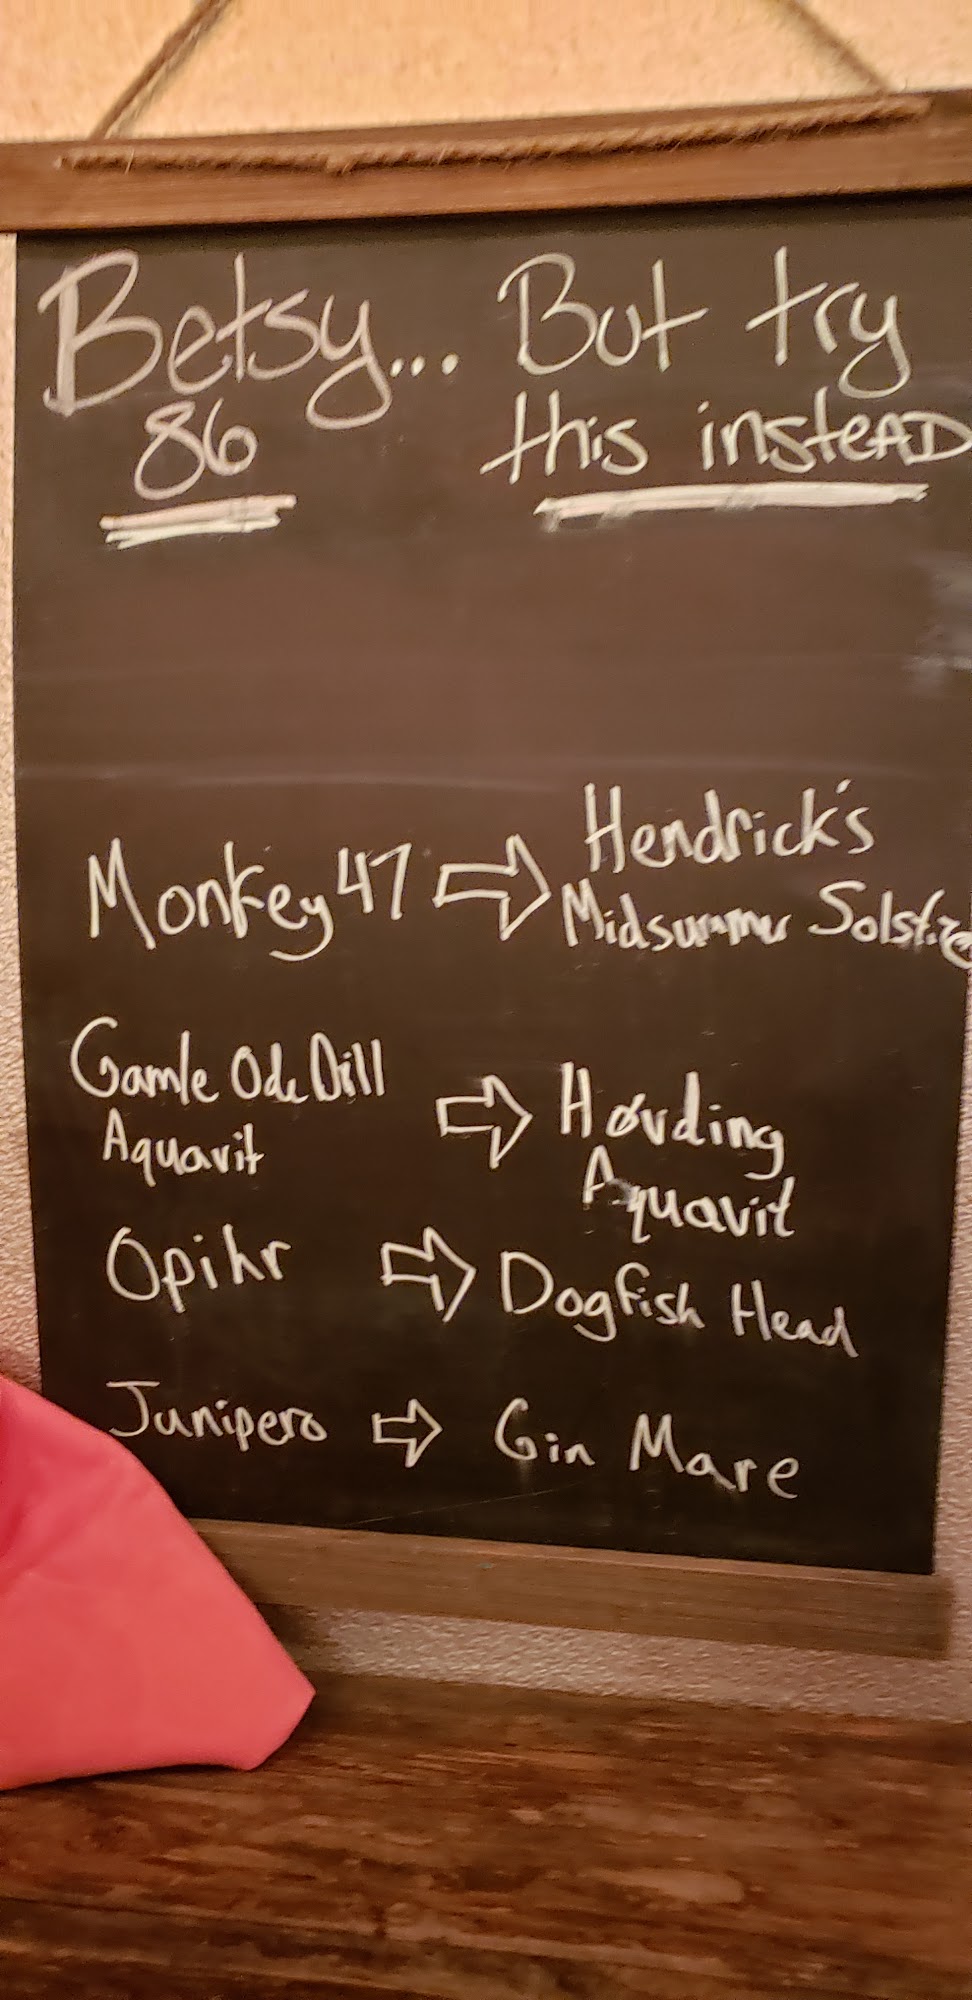 Betsy... But try
86 this insteAD
Monkey 47 ⇨ Hendrick's
Midsummer Solstice
Gamle Ode Dill
Aquavit ⇨ Høvding
Aquavit
Opihr ⇨ Dogfish Head
Junipero ⇨ Gin Mare